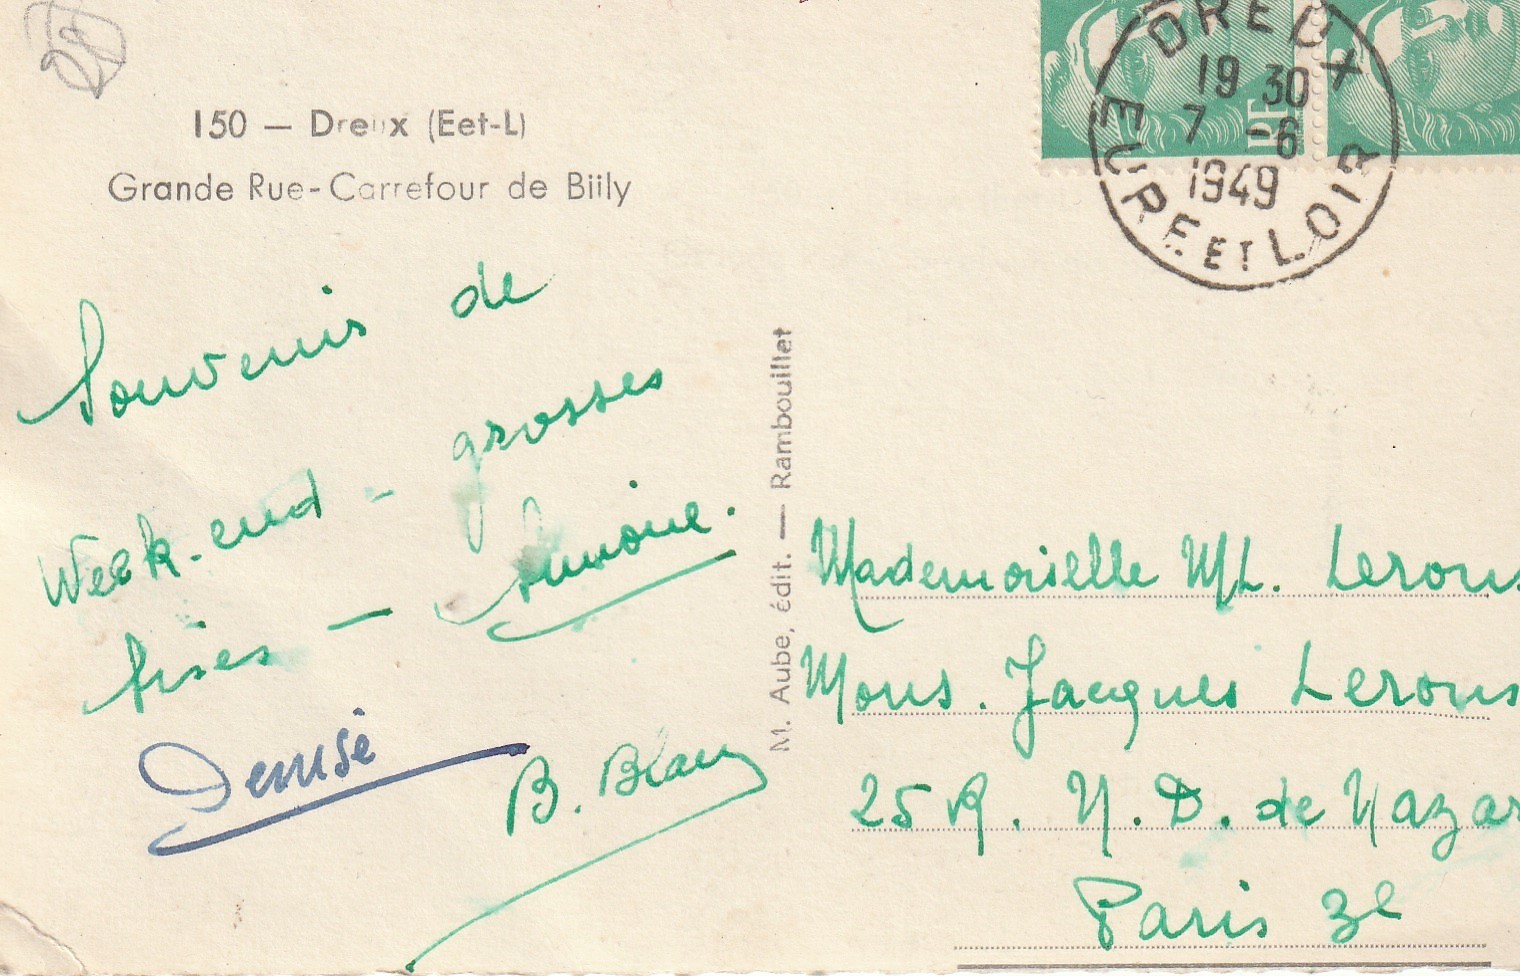 150 — Dreux (Eet-L)
Grande Rue-Carrefour de Biily
Souvenir de
Week-end - grosses
bises — Simone.
Denise
B. Blan
M. Aube, édit. — Rambouillet
DREUX
19 30
7 -6
1949
EURE ET LOIR
RF
Mademoiselle ML. Lerou
Mons. Jacques Lerou
25 R. N. D. de Nazar
Paris 3e